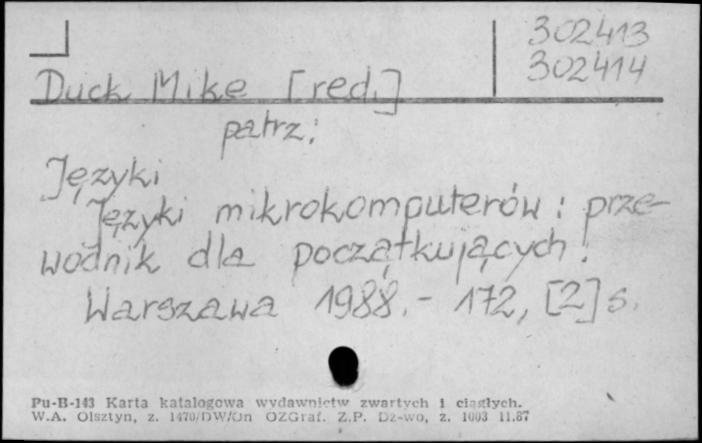 302413
302414
Duck Mike [red.]
patrz:
Języki
Języki mikrokomputerów : prze-
wodnik dla początkujących.
Warszawa 1988.- 172, [2] s.
Pu-B-143 Karta katalogowa wydawnictw zwartych i ciągłych.
W.A. Olsztyn, z. 1470/DW/On OZGraf. Z.P. Dz-wo, z. 1003 11.87